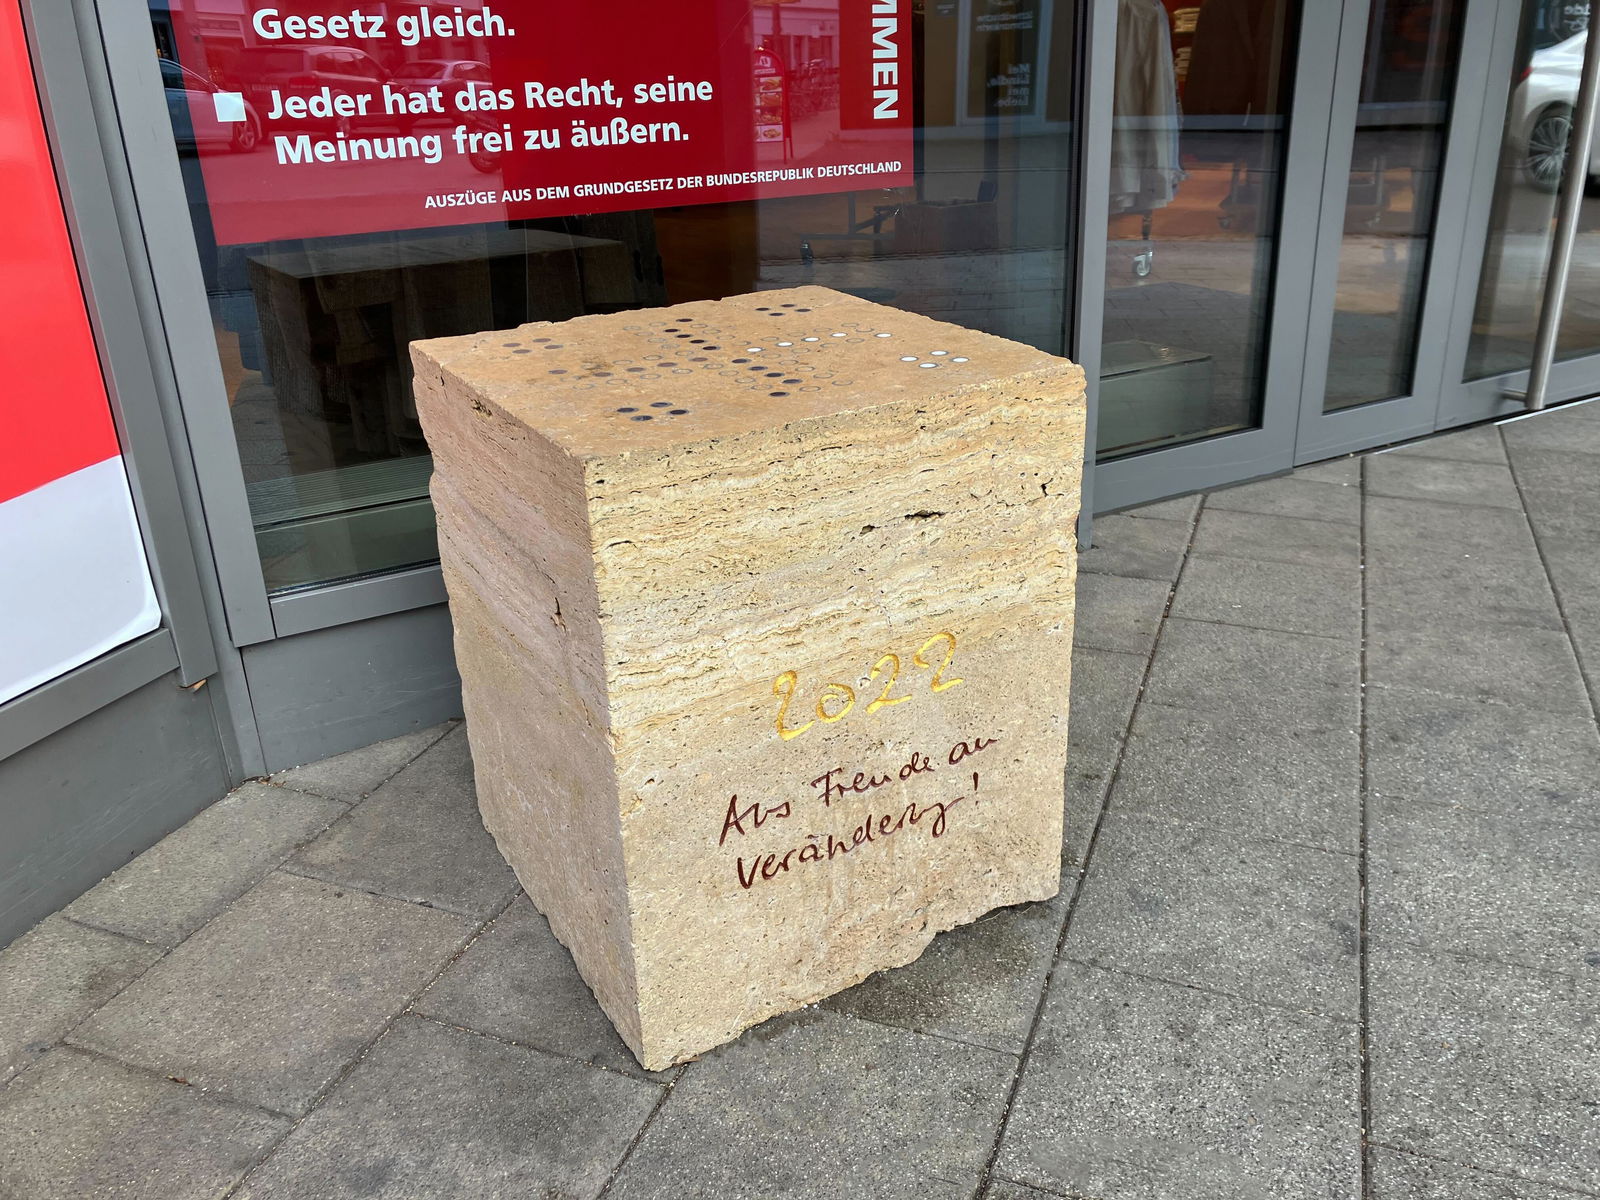 Gesetz gleich.
Jeder hat das Recht, seine
Meinung frei zu äußern.
AUSZÜGE AUS DEM GRUNDGESETZ DER BUNDESREPUBLIK DEUTSCHLAND
MMEN
Mei
Lindle,
mei
Liebe.
2022
Aus Freude an
Veränderg!